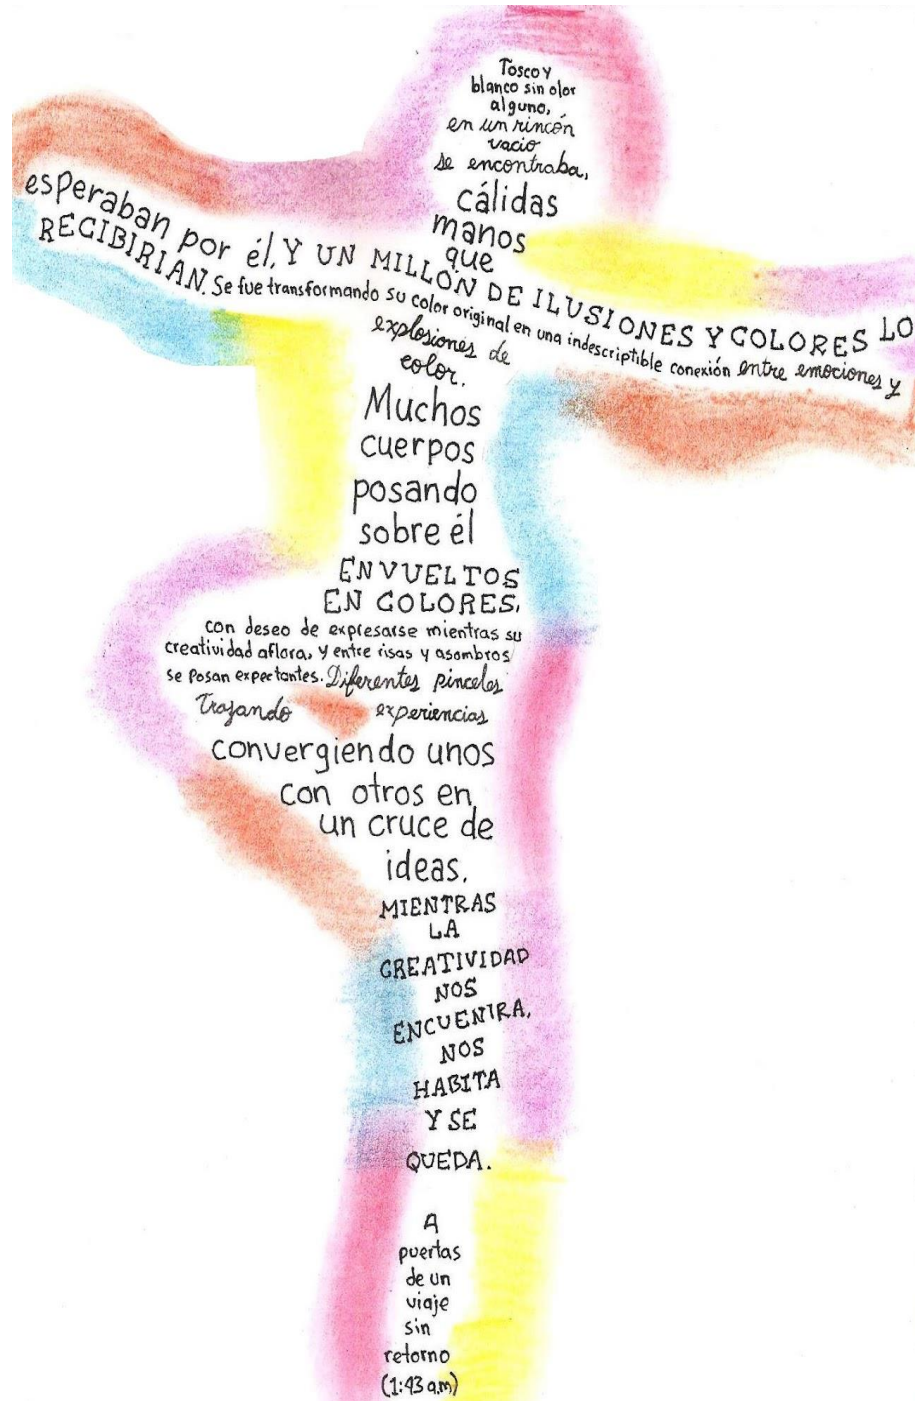 Tosco y
blanco sin olor
alguno,
en un rincón
vacio
se encontraba,
cálidas
manos
que
esperaban por él, Y UN MILLÓN DE ILUSIONES Y COLORES LO
RECIBIRIAN. Se fue transformando su color original en una indescriptible conexión entre emociones y
explosiones de
color.
Muchos
cuerpos
posando
sobre él
ENVUELTOS
EN COLORES,
con deseo de expresarse mientras su
creatividad aflora, y entre risas y asombros
se posan expectantes. Diferentes pinceles
Trazando experiencias
convergiendo unos
con otros en
un cruce de
ideas,
MIENTRAS
LA
CREATIVIDAD
NOS
ENCUENTRA,
NOS
HABITA
Y SE
QUEDA.
A
puertas
de un
viaje
sin
retorno
(1:43 a.m)